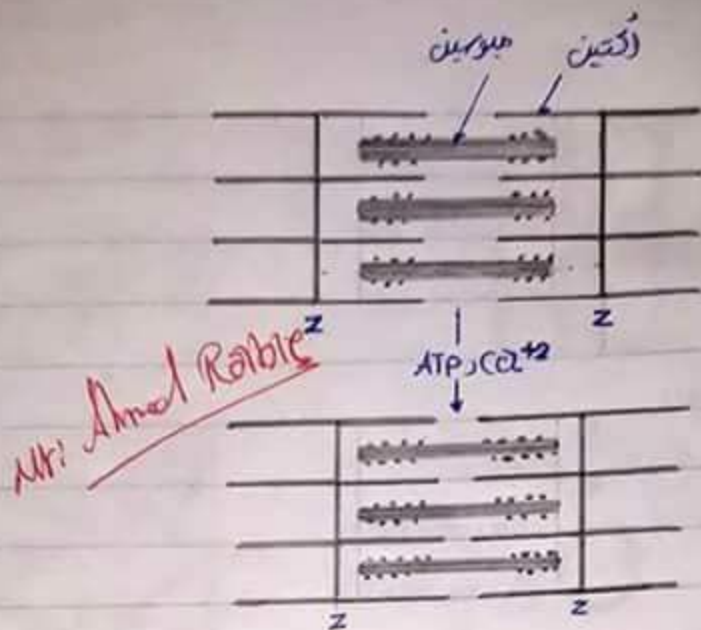 ميوسين أكتين
Z Z
ATP و Ca+2
Mr: Ahmed Rabie
Z Z